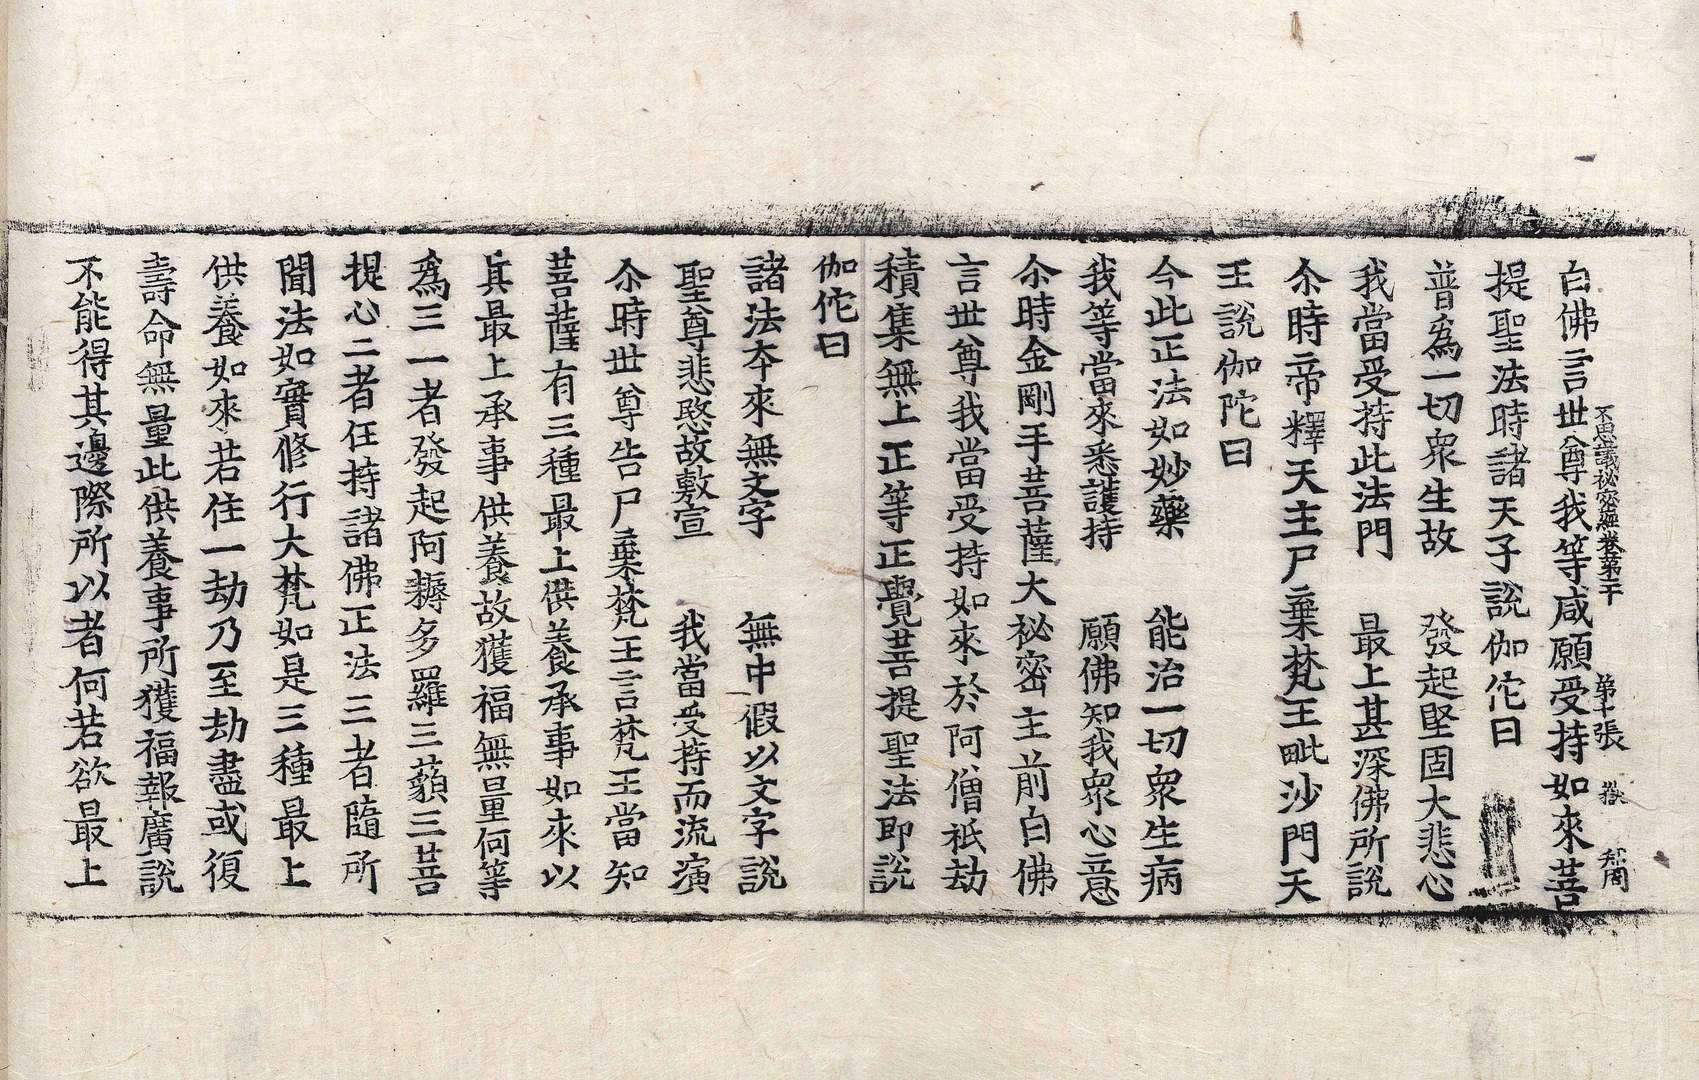 白佛言世尊我等咸願受持如來菩
不思議秘密經卷第二十 第十張 嶽
提聖法時諸天子說伽佗曰
普爲一切衆生故 發起堅固大悲心
我當受持此法門 最上甚深佛所說
尒時帝釋天主尸棄梵王毗沙門天
王說伽陀曰
今此正法如妙藥 能治一切衆生病
我等當來悉護持 願佛知我衆心意
尒時金剛手菩薩大祕密主前白佛
言世尊我當受持如來於阿僧祇劫
積集無上正等正覺菩提聖法即說
伽佗曰
諸法夲來無文字 無中假以文字說
聖尊悲愍故敷宣 我當受持而流演
尒時世尊告尸棄梵王言梵王當知
菩薩有三種最上供養承事如來以
其最上承事供養故獲福無量何等
爲三一者發起阿耨多羅三藐三菩
提心二者任持諸佛正法三者隨所
聞法如實修行大梵如是三種最上
供養如來若住一劫乃至劫盡或復
壽命無量此供養事所獲福報廣說
不能得其邊際所以者何若欲最上